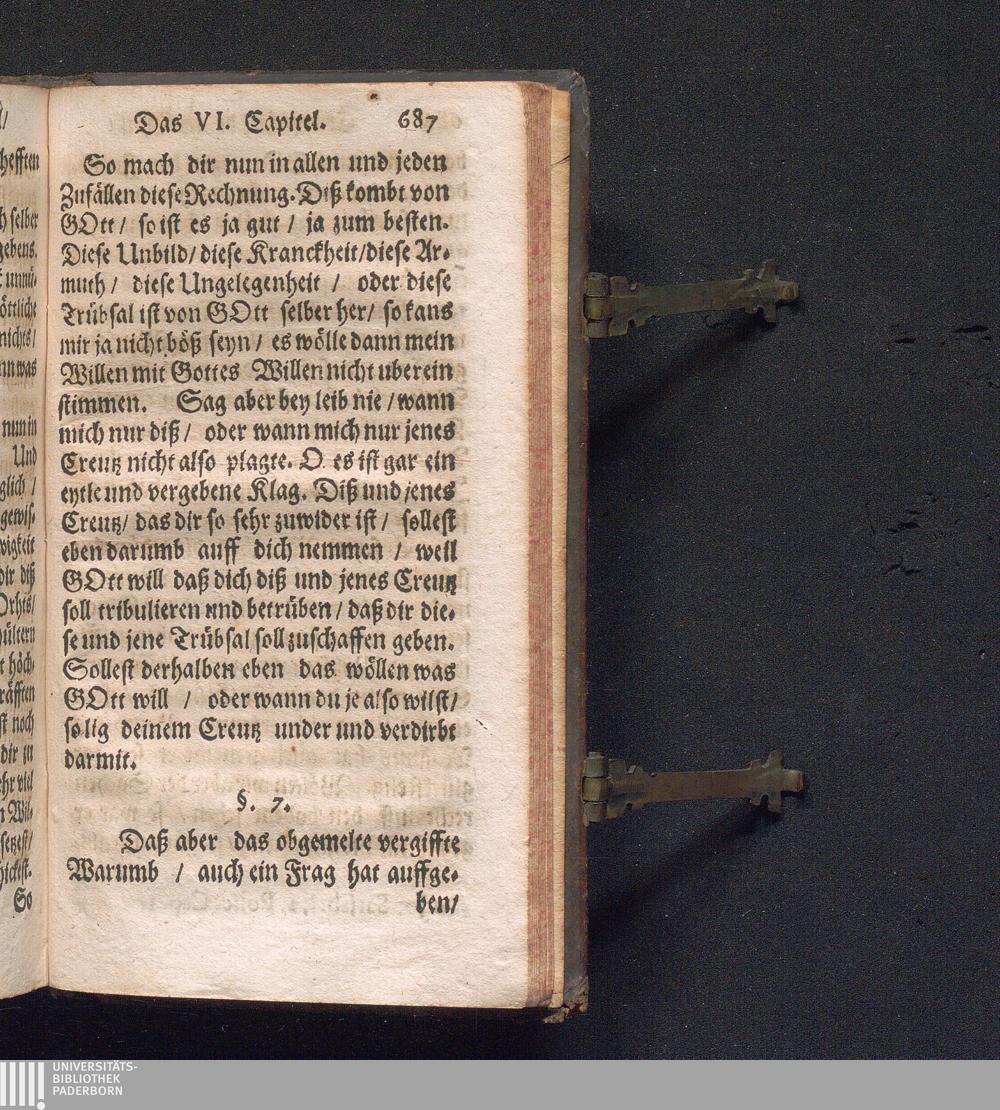 hefften
selber
gebens.
unnü-
öttliche
nichts/
was
nun in
Und
glich /
gewis-
wigkeit
dir diß
Orhts/
hültern
höch-
räfften
noch
dir in
viel
Wil-
setzest/
hickst.
So
Das VI. Capitel. 687
So mach dir nun in allen und jeden
Zufällen diese Rechnung. Diß kombt von
GOtt / so ist es ja gut / ja zum besten.
Diese Unbild / diese Kranckheit / diese Ar-
muth / diese Ungelegenheit / oder diese
Trübsal ist von GOtt selber her / so kans
mir ja nicht böß seyn / es wölle dann mein
Willen mit Gottes Willen nicht uberein
stimmen. Sag aber bey leib nie / wann
mich nur diß / oder wann mich nur jenes
Creutz nicht also plagte. O es ist gar ein
eytle und vergebene Klag. Diß und jenes
Creutz / das dir so sehr zuwider ist / sollest
eben darumb auff dich nemmen / weil
GOtt will daß dich diß und jenes Creutz
soll tribulieren und betrüben / daß dir die-
se und jene Trübsal soll zuschaffen geben.
Sollest derhalben eben das wöllen was
GOtt will / oder wann du je also wilst /
so lig deinem Creutz under und verdirbt
darmit.
§. 7.
Daß aber das obgemelte vergiffte
Warumb / auch ein Frag hat auffge-
ben /
UNIVERSITÄTS-
BIBLIOTHEK
PADERBORN